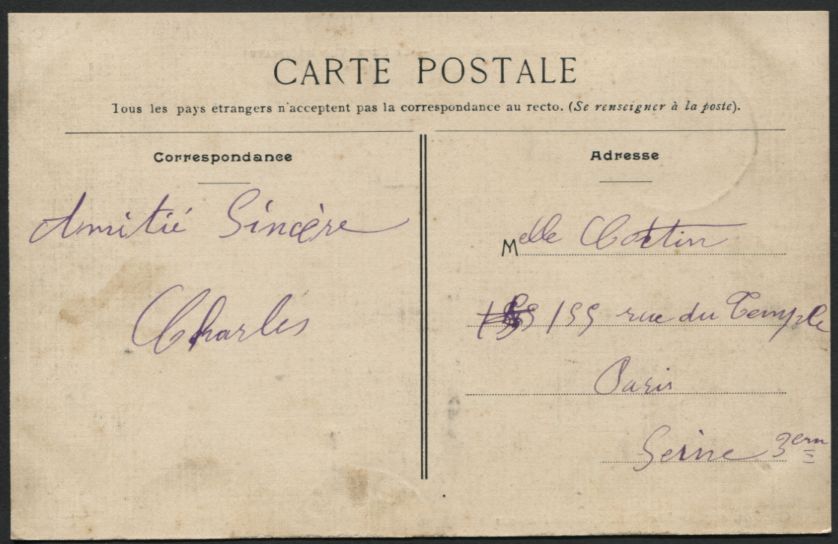 CARTE POSTALE
Tous les pays étrangers n'acceptent pas la correspondance au recto. (Se renseigner à la poste).
Correspondance
Amitié Sincère
Charles
Adresse
Melle
155 rue du Temple
Paris
Seine 3em